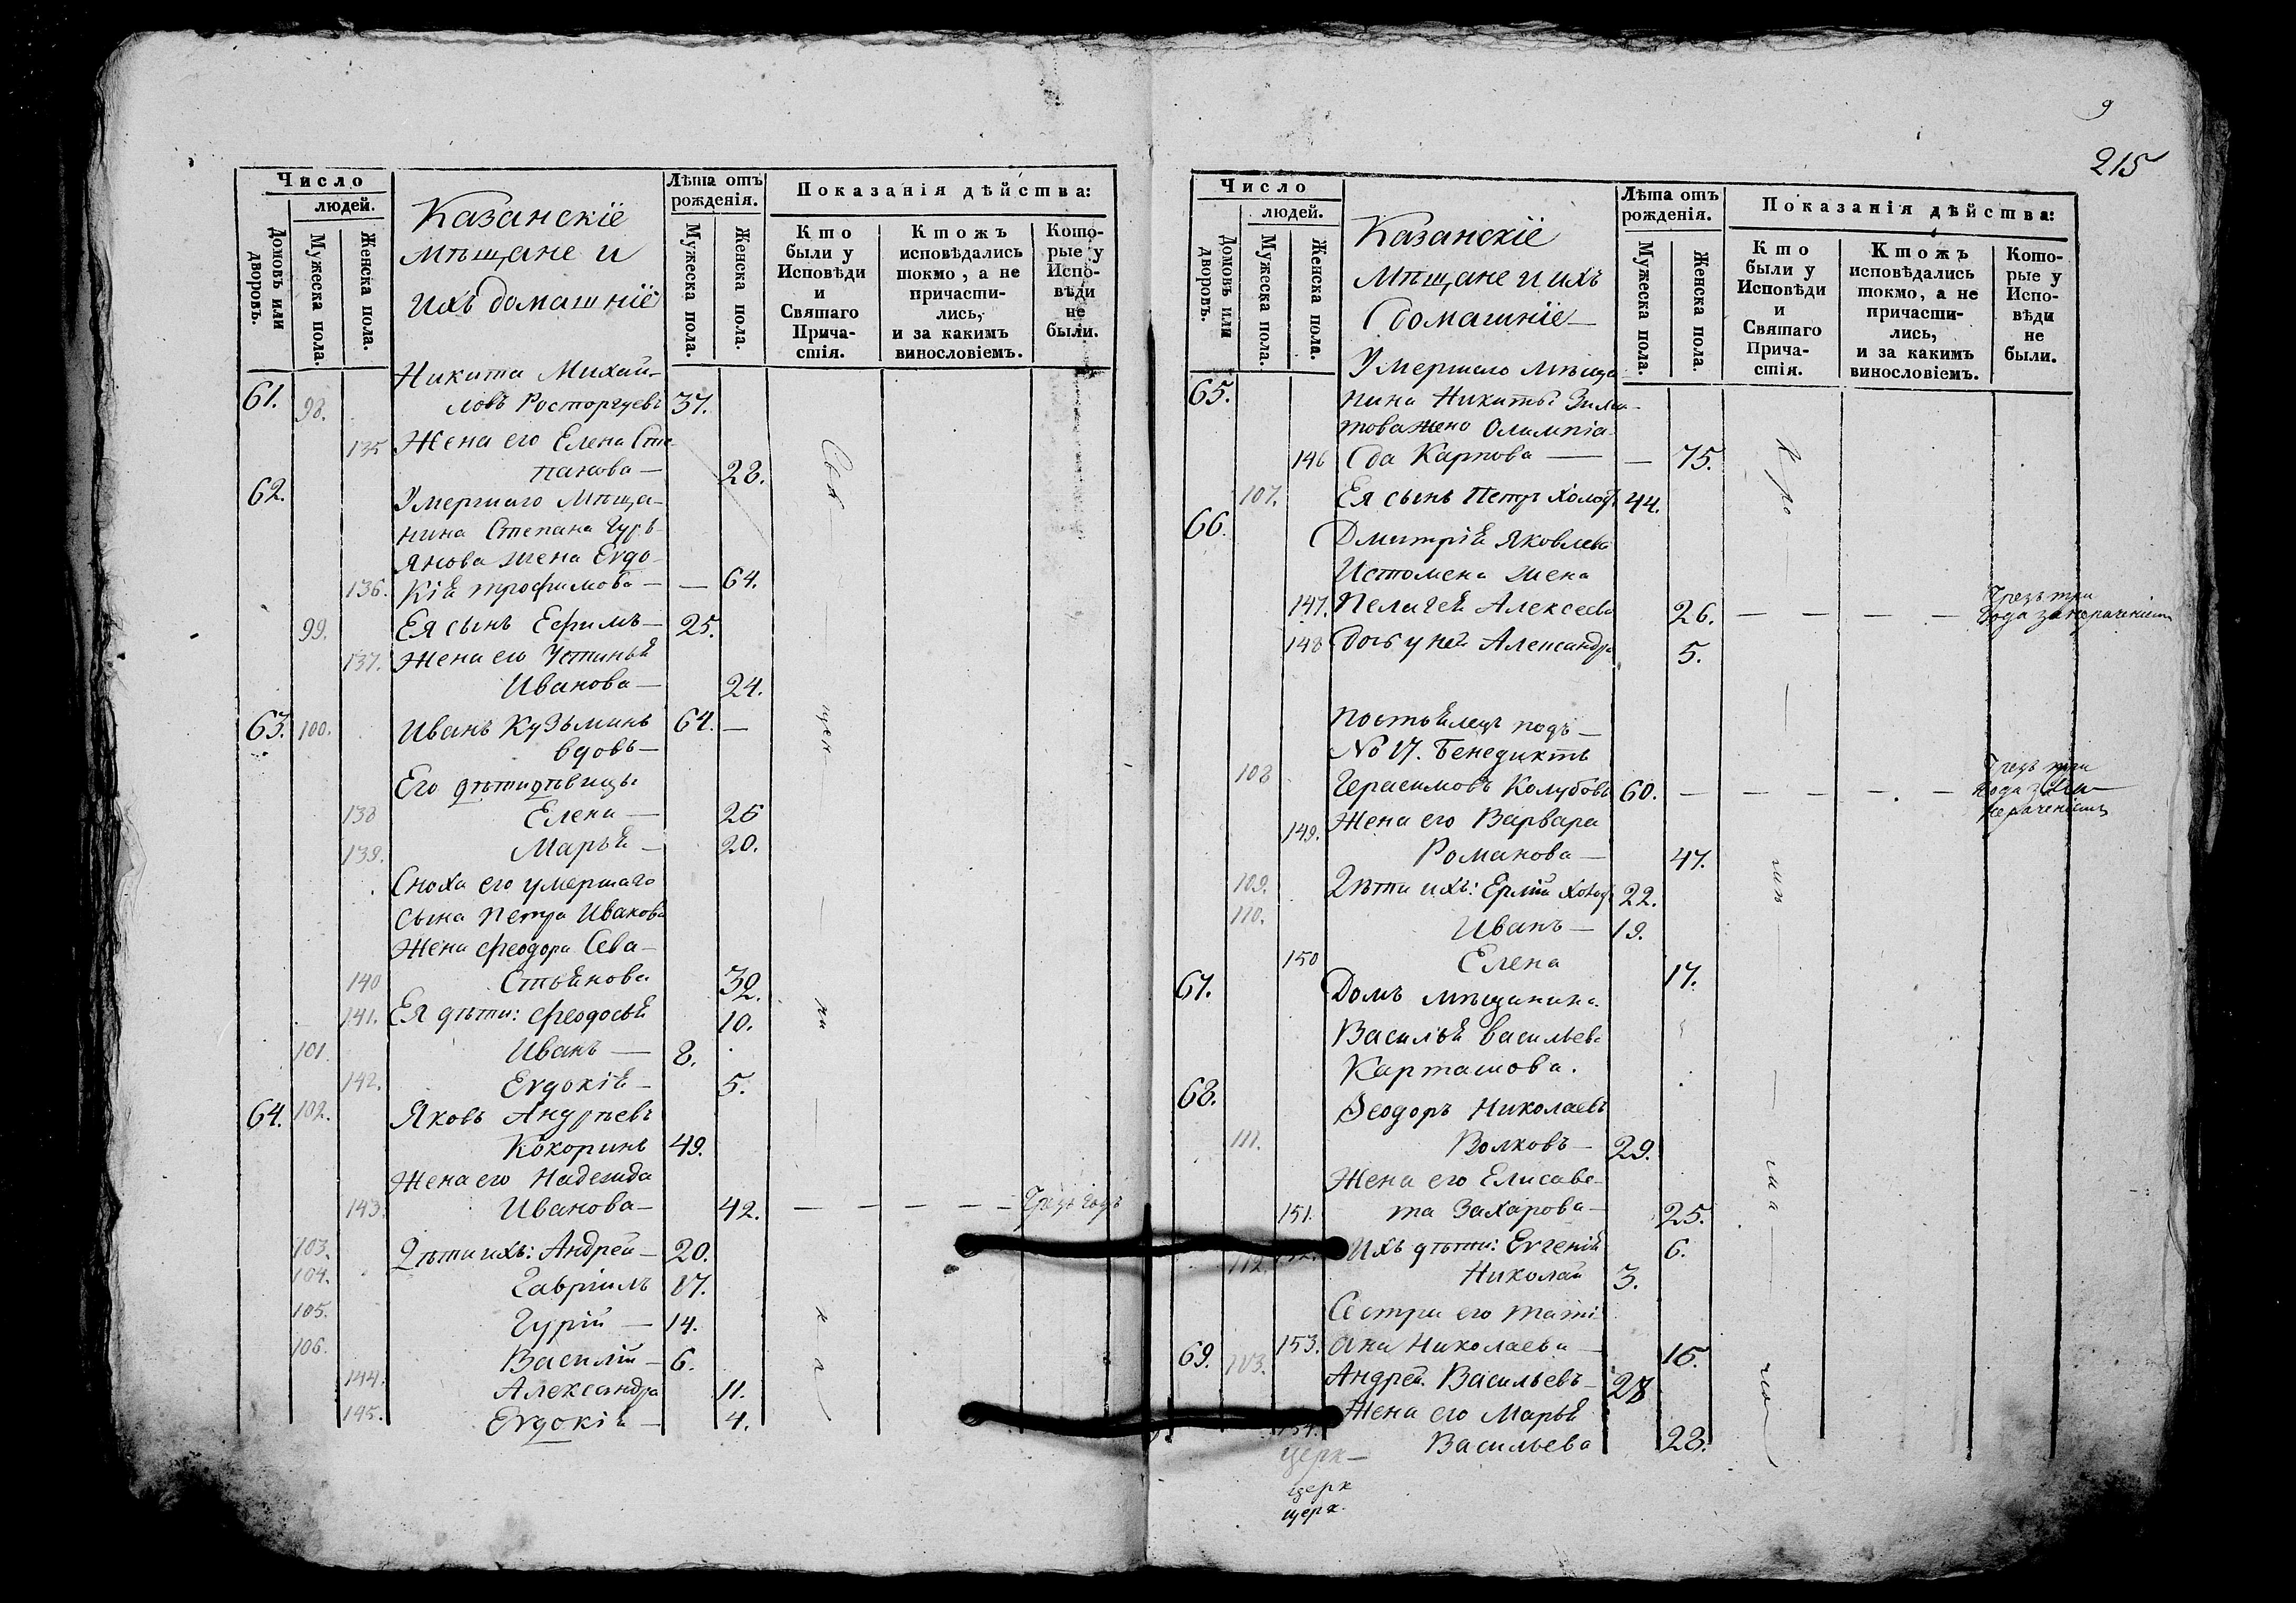 Число
людей.
Домовъ или дворовъ.
Мужеска пола.
Женска пола.
Казанскіе
мѣщане и
ихъ домашніе
Лѣта отъ
рожденія.
Мужеска пола.
Женска пола.
Показанія дѣйства:
Кто
были у
Исповѣди
и
Святаго
Прича-
стія.
Ктожъ
исповѣдались
токмо, а не
причасти-
лись,
и за какимъ
винословіемъ.
Кото-
рые у
Испо-
вѣди
не
были.
Никита Михай-
61. 98. ловъ Росторгуевъ 37.
135 Жена его Елена Сте
панова — 28.
62. Умершаго мѣща-
нина Степана Гурь-
янова жена Евдо-
136. кія трофимова — — 64.
99. Ея сынъ Ефимъ — 25.
137. Жена его Устинья
Иванова — 24.
63. 100. Иванъ Кузьминъ 64. —
вдовъ —
Его дѣти дѣвицы
138 Елена — 26
139. Марья — 20.
Сноха его умершаго
сына петра Иванова
Жена феодора Сева-
140 стьянова 32.
141. Ея дѣти: феодосья 10.
101. Иванъ — 8.
142. Евдокія — 5.
64. 102. Яковъ Андреевъ
Кокоринъ 49.
Жена его Надежда
143. Иванова — 42. — — — — — Чрезъ годъ
103. Дѣти ихъ: Андрей — 20.
104. Гавріилъ 17.
105. Гурій — 14.
106. Василій — 6.
144. Александра 11.
145. Евдокія — 4.
9
215
Число
людей.
Домовъ или дворовъ.
Мужеска пола.
Женска пола.
Казанскіе
мѣщане и ихъ
домашніе —
Лѣта отъ
рожденія.
Мужеска пола.
Женска пола.
Показанія дѣйства:
Кто
были у
Исповѣди
и
Святаго
Прича-
стія.
Ктожъ
исповѣдались
токмо, а не
причасти-
лись,
и за какимъ
винословіемъ.
Кото-
рые у
Испо-
вѣди
не
были.
Умершаго мѣща
65. нина Никиты
това жена Олимпіа-
146 да Карпова — — 75.
107. Ея сынъ Петръ холостъ 44.
66. Дмитрія Яковлева
Истомена жена
147. Пелагея Алексеева 26. — — — — Чрезъ три
года за нераченіемъ
148 дочь у ней Александра 5.
постоялецъ подъ —
No 17. Бенедиктъ
108 Герасимовъ Колубовъ 60. — — — — — Чрезъ три
года за
нераченіемъ
149. Жена его Варвара
Романова — 47.
109. Дѣти ихъ: холостъ 22.
110. Иванъ — 19.
150 Елена 17.
67. Домъ мѣщанина
Василья васильева
Карташова.
68. Феодоръ Николаевъ
111. Волковъ — 29.
Жена его Елисаве-
151. та Захарова — 25.
152. Ихъ дѣти: Евгенія 6.
112. Николай 3.
Сестра его тати-
153. ана Николаева — 16.
69. 113. Андрей Васильевъ — 28
154. Жена его Марья
Васильева 28.
церк —
церк
церк.